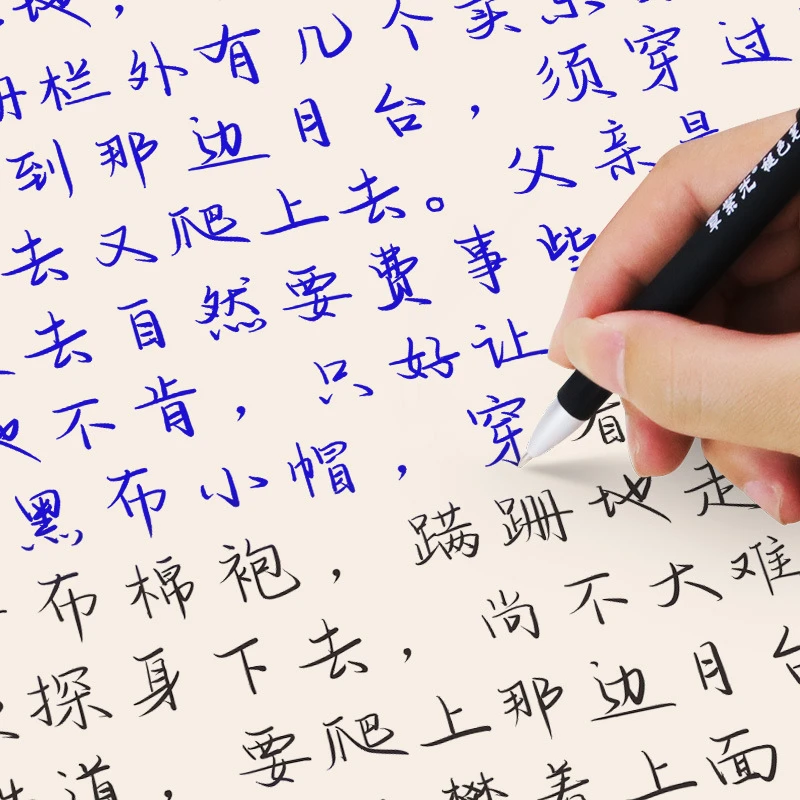 地，
栏外有几个卖东
到那边月台，须穿过
去又爬上去。父亲是
去自然要费事些
不肯，只好让
黑布小帽，穿
布棉袍，蹒跚地走
探身下去，尚不大难
道，要爬上那边月台
攀着上面